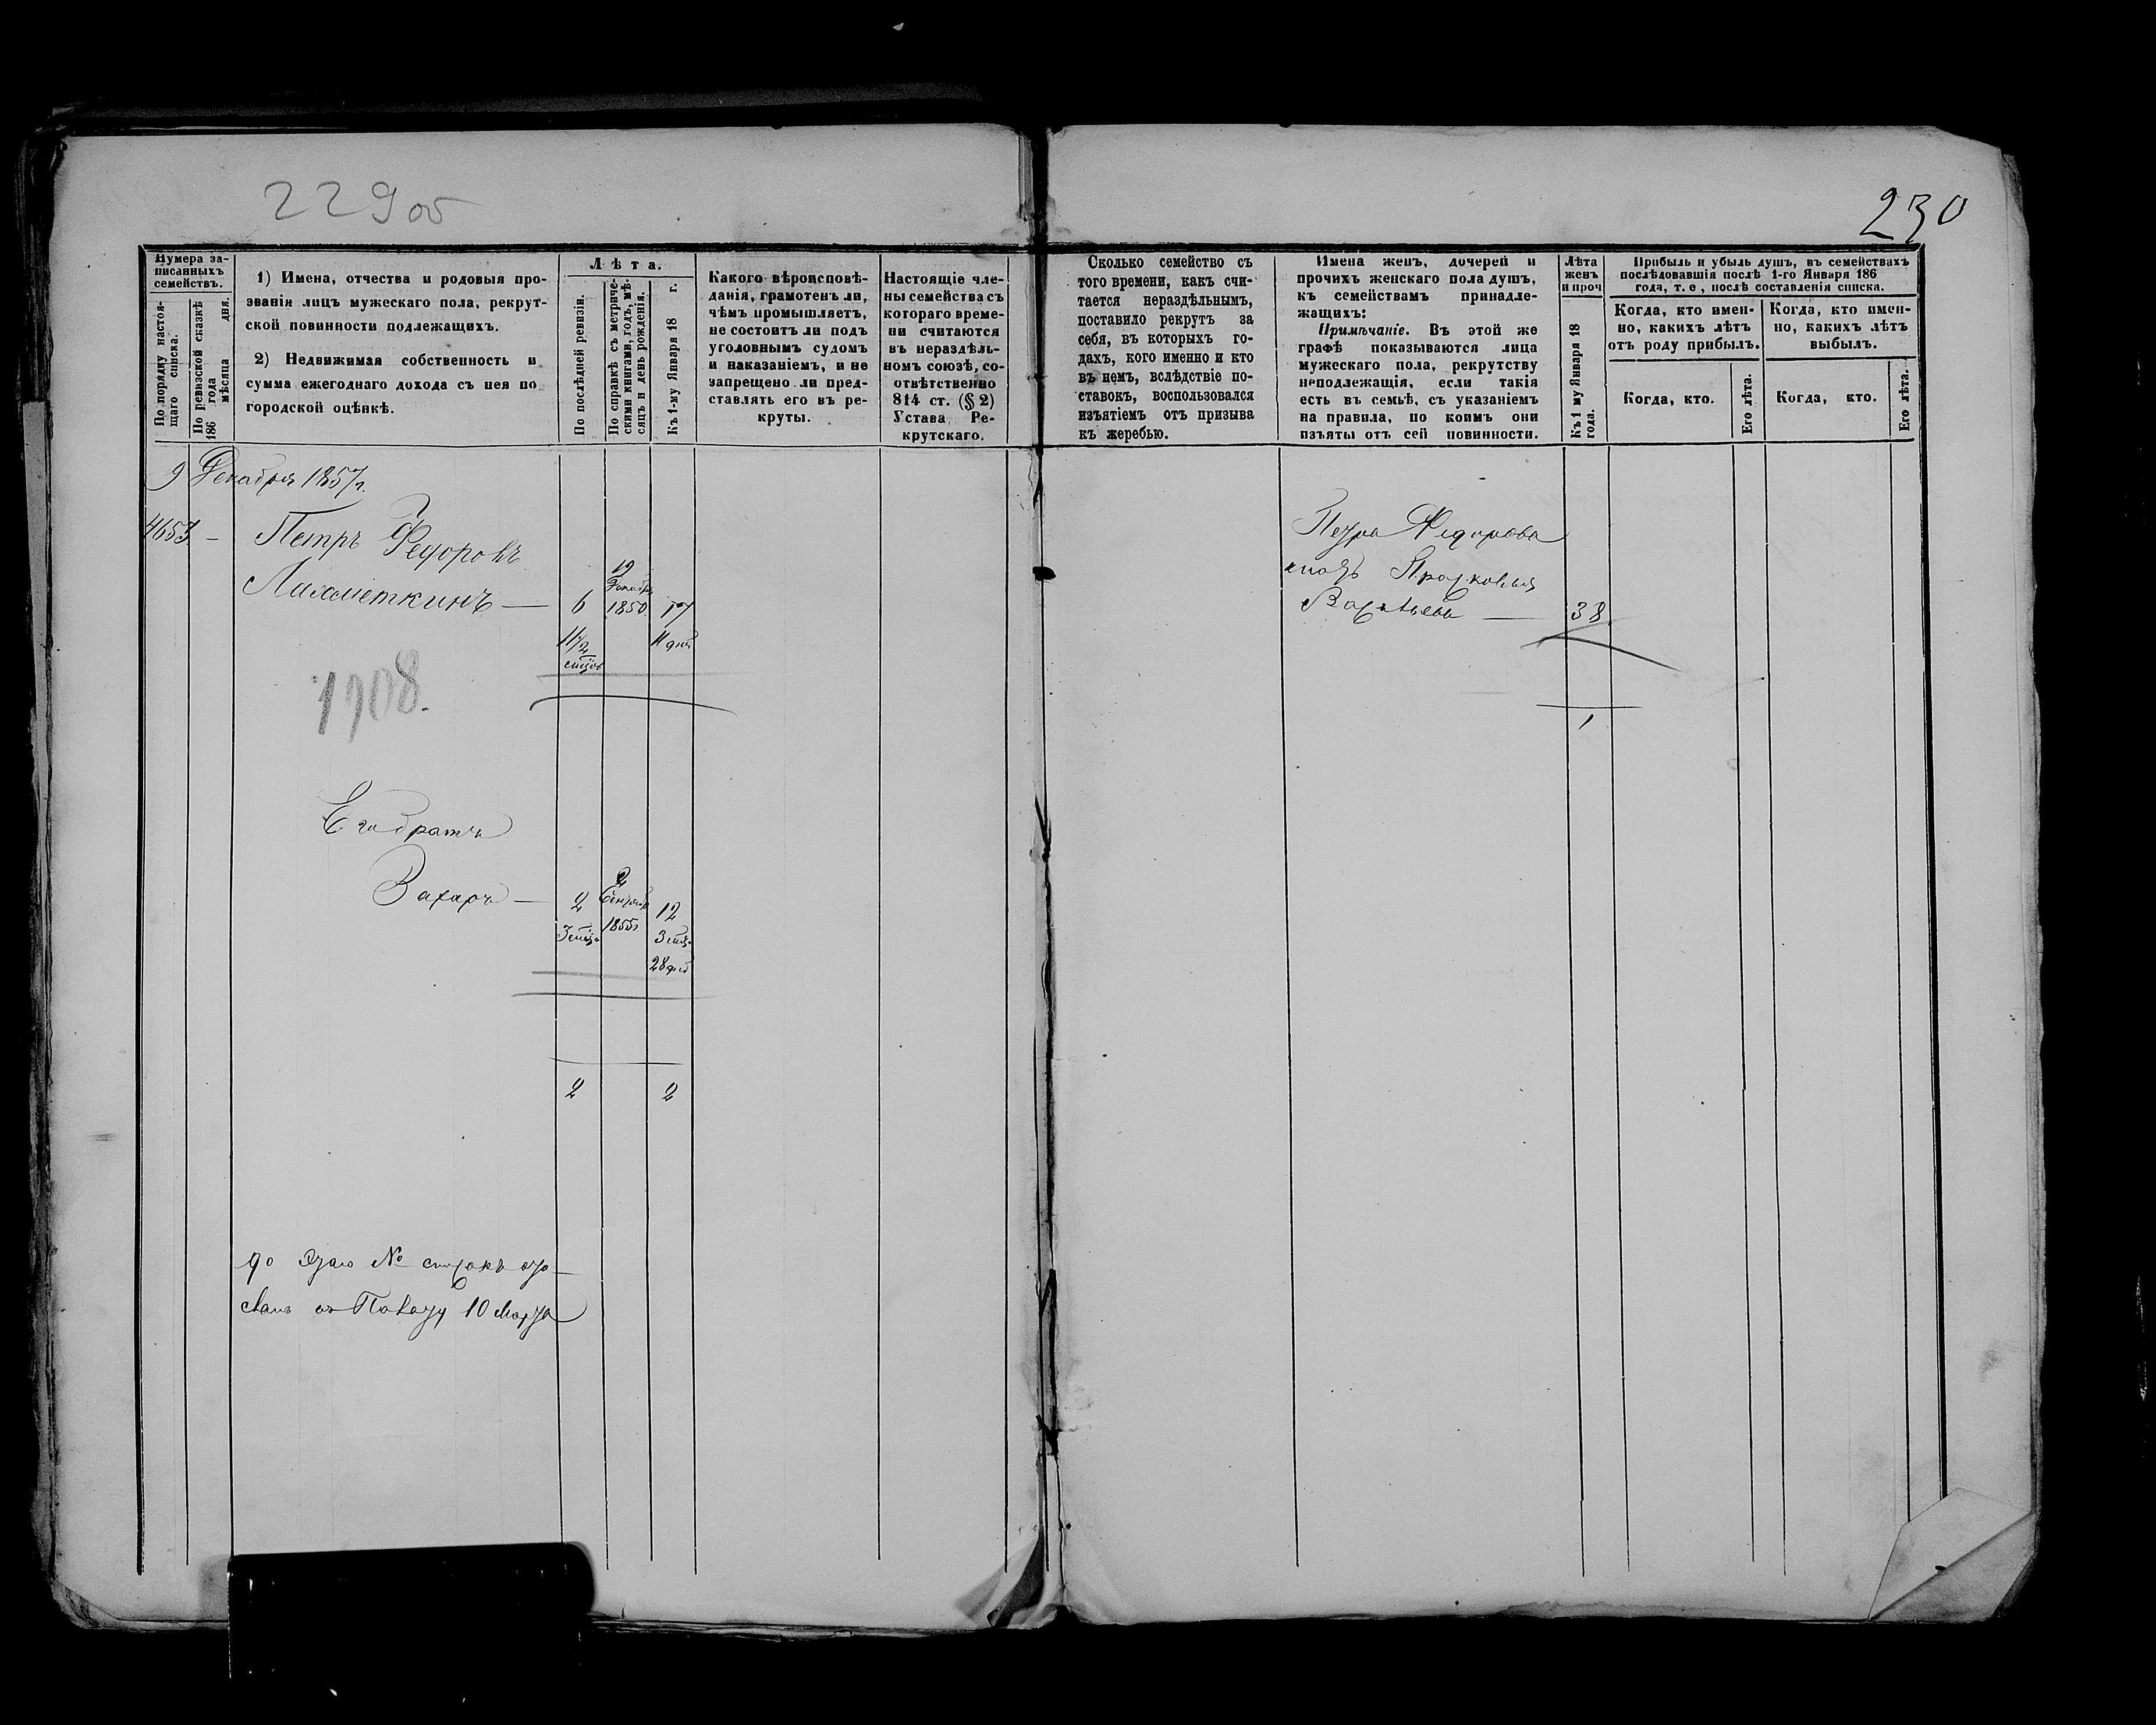 229об
230
Нумера за-
писанныхъ
семействъ.
По порядку настоя-
щаго списка.
По ревизской сказкѣ
186 года
мѣсяца дня.
1) Имена, отчества и родовыя про-
званія лицъ мужескаго пола, рекрут-
ской повинности подлежащихъ.
2) Недвижимая собственность и
сумма ежегоднаго дохода съ нея по
городской оцѣнкѣ.
Лѣта.
По послѣдней ревизіи.
По справкѣ съ метриче-
скими книгами, годъ, мѣ-
сяцъ и день рожденія.
Къ 1-му Января 18 г.
Какого вѣроисповѣ-
данія, грамотенъ ли,
чѣмъ промышляетъ,
не состоитъ ли подъ
уголовнымъ судомъ
и наказаніемъ, и не
запрещено ли пред-
ставлять его въ ре-
круты.
Настоящіе чле-
ны семейства съ
котораго време-
ни считаются
въ нераздѣль-
номъ союзѣ, со-
отвѣтственно
814 ст. (§ 2)
Устава Ре-
крутскаго.
Сколько семейство съ
того времени, какъ счи-
тается нераздѣльнымъ,
поставило рекрутъ за
себя, въ которыхъ го-
дахъ, кого именно и кто
въ немъ, вслѣдствіе по-
ставокъ, воспользовался
изъятіемъ отъ призыва
къ жеребью.
Имена женъ, дочерей и
прочихъ женскаго пола душъ,
къ семействамъ принадле-
жащихъ:
Примѣчаніе. Въ этой же
графѣ показываются лица
мужескаго пола, рекрутству
неподлежащія, если такія
есть въ семьѣ, съ указаніемъ
на правила, по коимъ они
изъяты отъ сей повинности.
Лѣта
женъ
и проч
Къ 1 му Января 18
года.
Прибыль и убыль душъ, въ семействахъ
послѣдовавшія послѣ 1-го Января 186
года, т. е, послѣ составленія списка.
Когда, кто имен-
но, какихъ лѣтъ
отъ роду прибылъ.
Когда, кто имен-
но, какихъ лѣтъ
выбылъ.
Когда, кто.
Его лѣта.
Когда, кто.
Его лѣта.
9 Декабря 1857г.
4653 — Петръ Федоровъ
— 6 19 Декабр 1850 17
11 1/2 11 дней
1908.
Его братъ
Захаръ — 2 2 Сентябр 1855г. 12
3 3
28 дней
2 2
№ списокъ
10 Марта
Петра Федорова
мать Прасковья
— 38
1